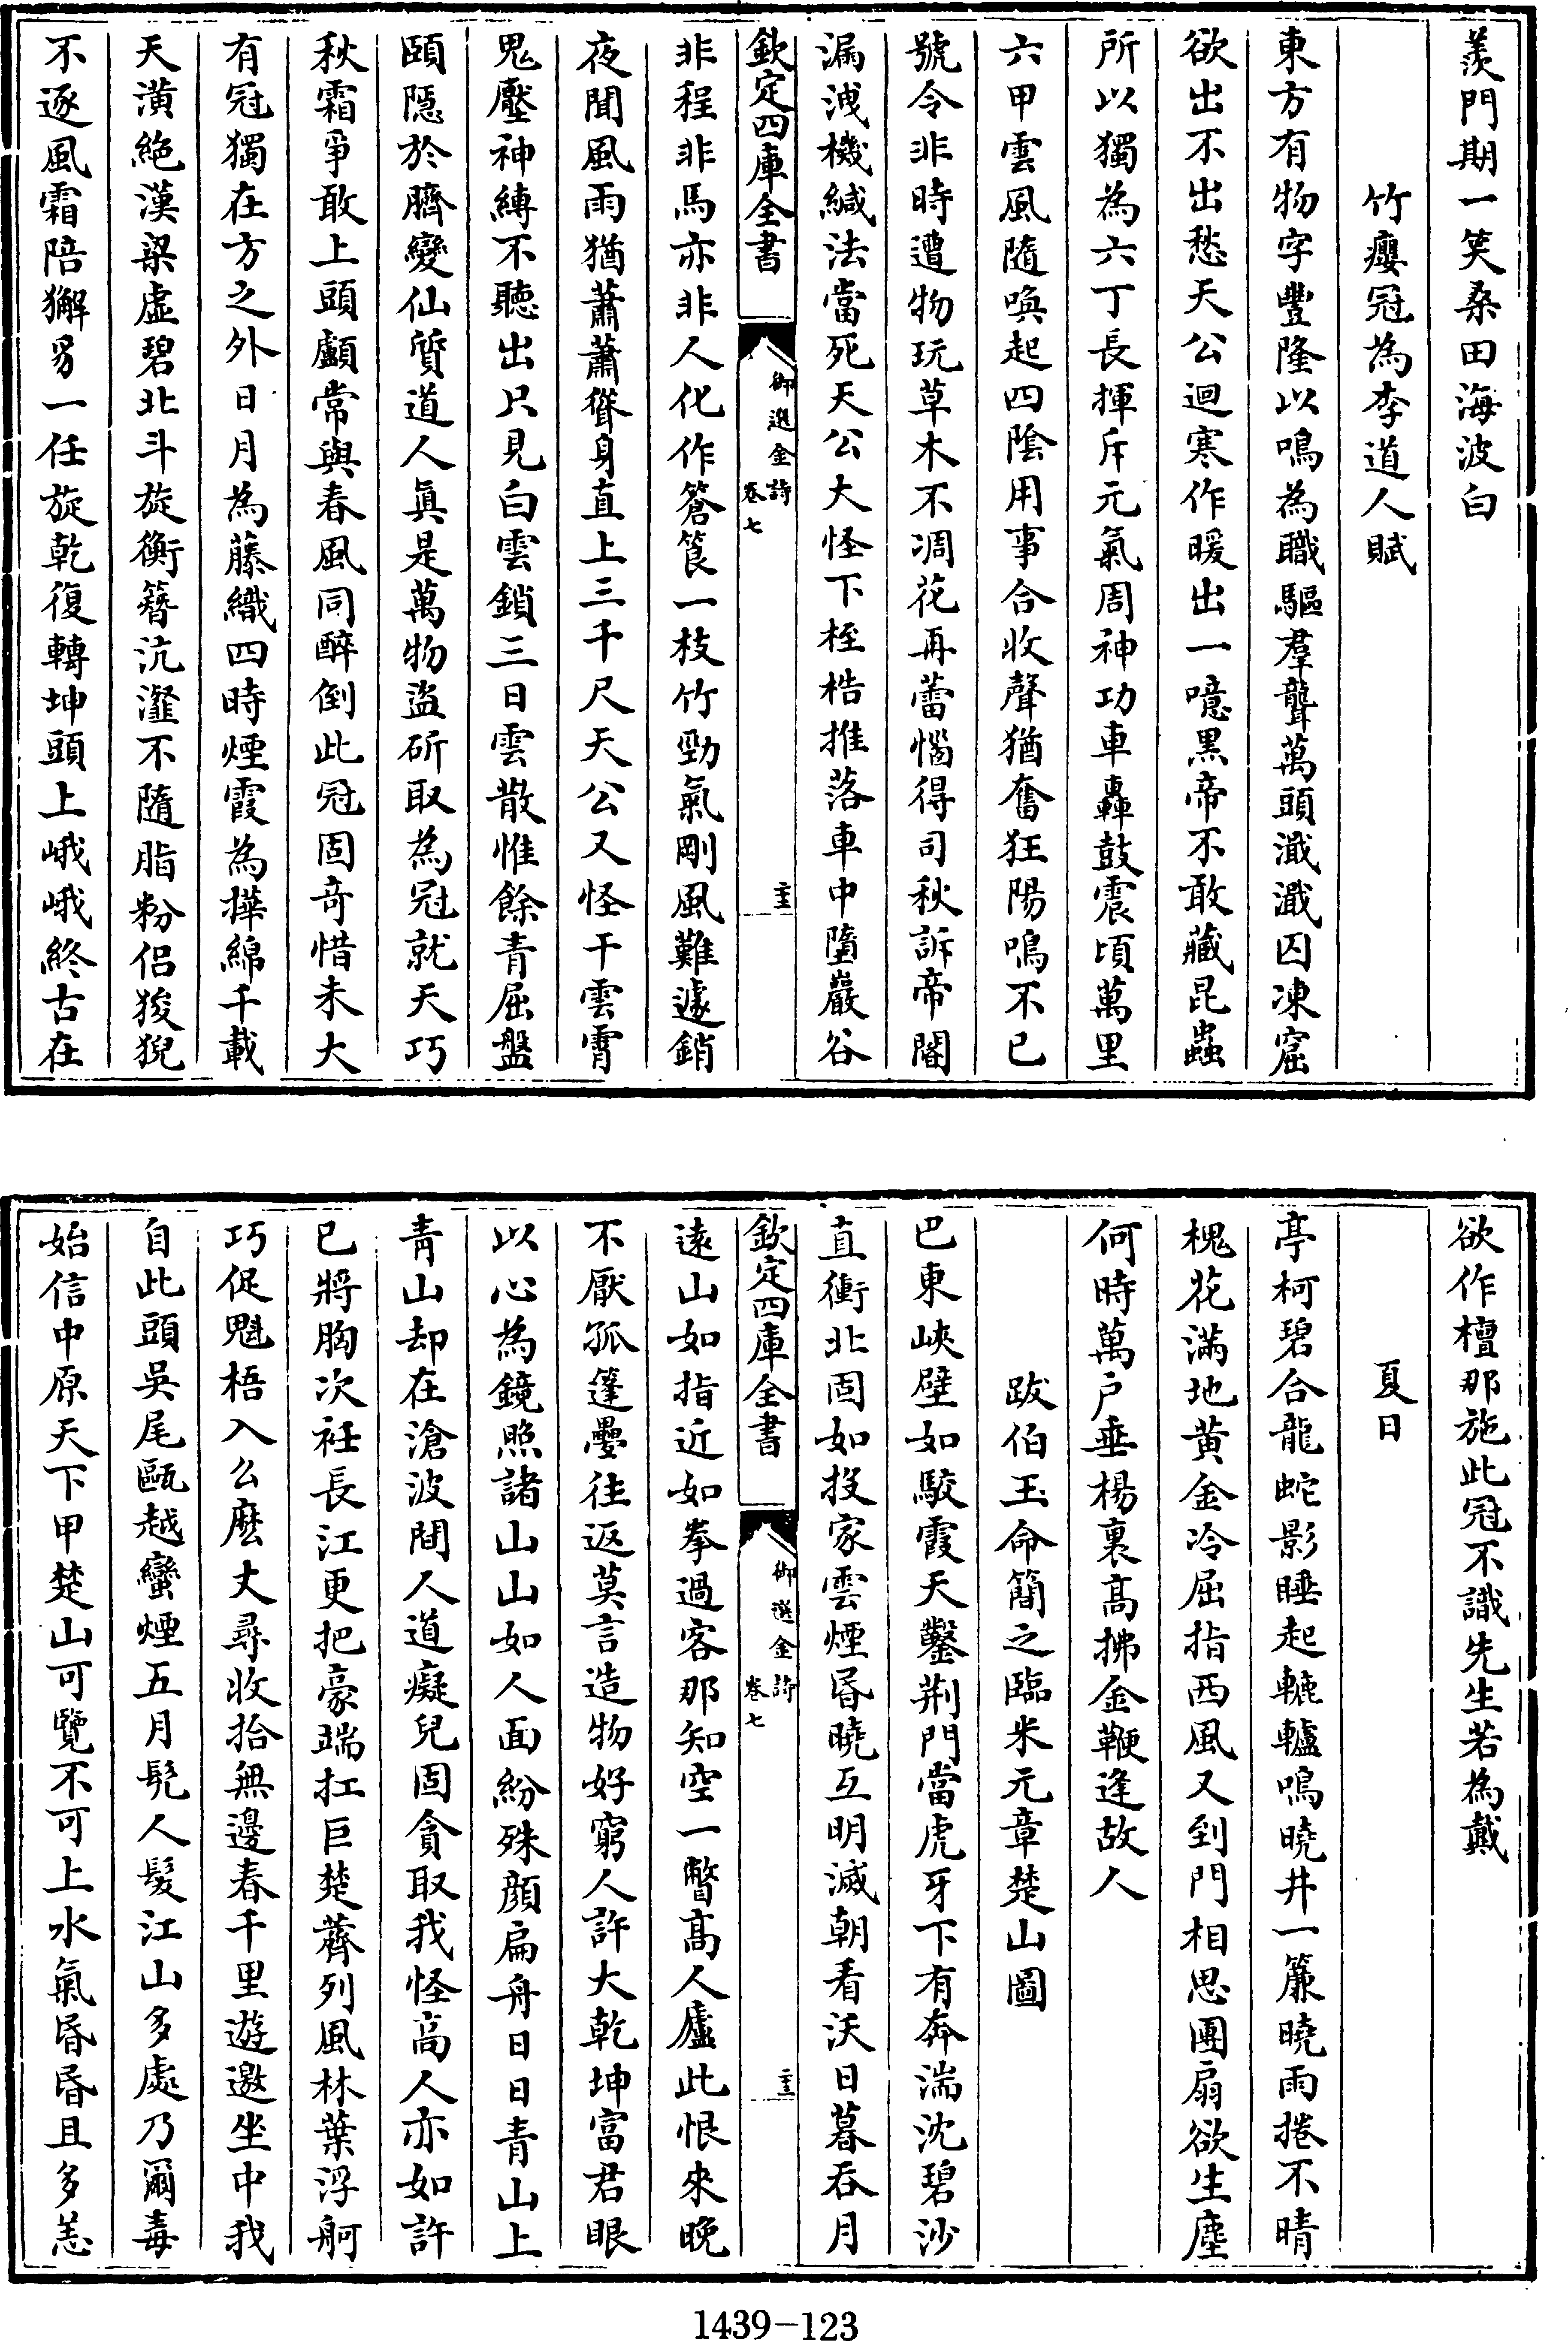 羨門期一笑桑田海波白
竹癭冠為李道人賦
東方有物字豐隆以鳴為職驅羣聾萬頭濈濈囚凍窟
欲出不出愁天公迴寒作暖出一噫黒帝不敢藏昆蟲
所以獨為六丁長揮斥元氣周神功車轟鼓震頃萬里
六甲雲風隨喚起四陰用事合收聲猶奮狂陽鳴不已
號令非時遭物玩草木不凋花再蕾惱得司秋訴帝閽
漏洩機緘法當死天公大怪下桎梏推落車中墮巖谷
欽定四庫全書
御選金詩
卷七
主
非程非馬亦非人化作簩筤一枝竹勁氣剛風難遽銷
夜聞風雨猶蕭蕭聳身直上三千尺天公又怪干雲霄
鬼壓神縳不聽出只見白雲鎖三日雲散惟餘青屈盤
頤隠於臍變仙質道人眞是萬物盜斫取為冠就天巧
秋霜爭敢上頭顱常與春風同醉倒此冠固奇惜未大
有冠獨在方之外日月為藤織四時煙霞為撑綿千載
天潢絶漢梁虛碧北斗旋衡簪沆瀣不隨脂粉侣狻猊
不逐風霜陪獬豸一任旋乾復轉坤頭上峨峨終古在
欲作檀那施此冠不識先生若為戴
夏日
亭柯碧合龍蛇影睡起轆轤鳴曉井一簾曉雨捲不晴
槐花滿地黄金冷屈指西風又到門相思團扇欲生塵
何時萬户垂楊裏髙拂金鞭逢故人
跋伯玉命簡之臨米元章楚山圖
巴東峽壁如駮霞天鑿荆門當虎牙下有奔湍沈碧沙
直衝北固如投家雲煙昬曉互明滅朝看沃日暮吞月
欽定四庫全書
御選金詩
卷七
主
逺山如指近如拳過客那知空一瞥髙人廬此恨來晚
不厭孤篷疊往返莫言造物好窮人許大乾坤富君眼
以心為鏡照諸山山如人面紛殊顔扁舟日日青山上
青山却在滄波間人道癡兒固貪取我怪高人亦如許
已將胸次衽長江更把豪端扛巨楚薺列風林葉浮舸
巧促魁梧入么麽丈尋收拾無邊春千里遊遨坐中我
自此頭吳尾甌越蠻煙五月髡人髮江山多處乃爾毒
始信中原天下甲楚山可覽不可上水氣昬昬且多恙
1439-123